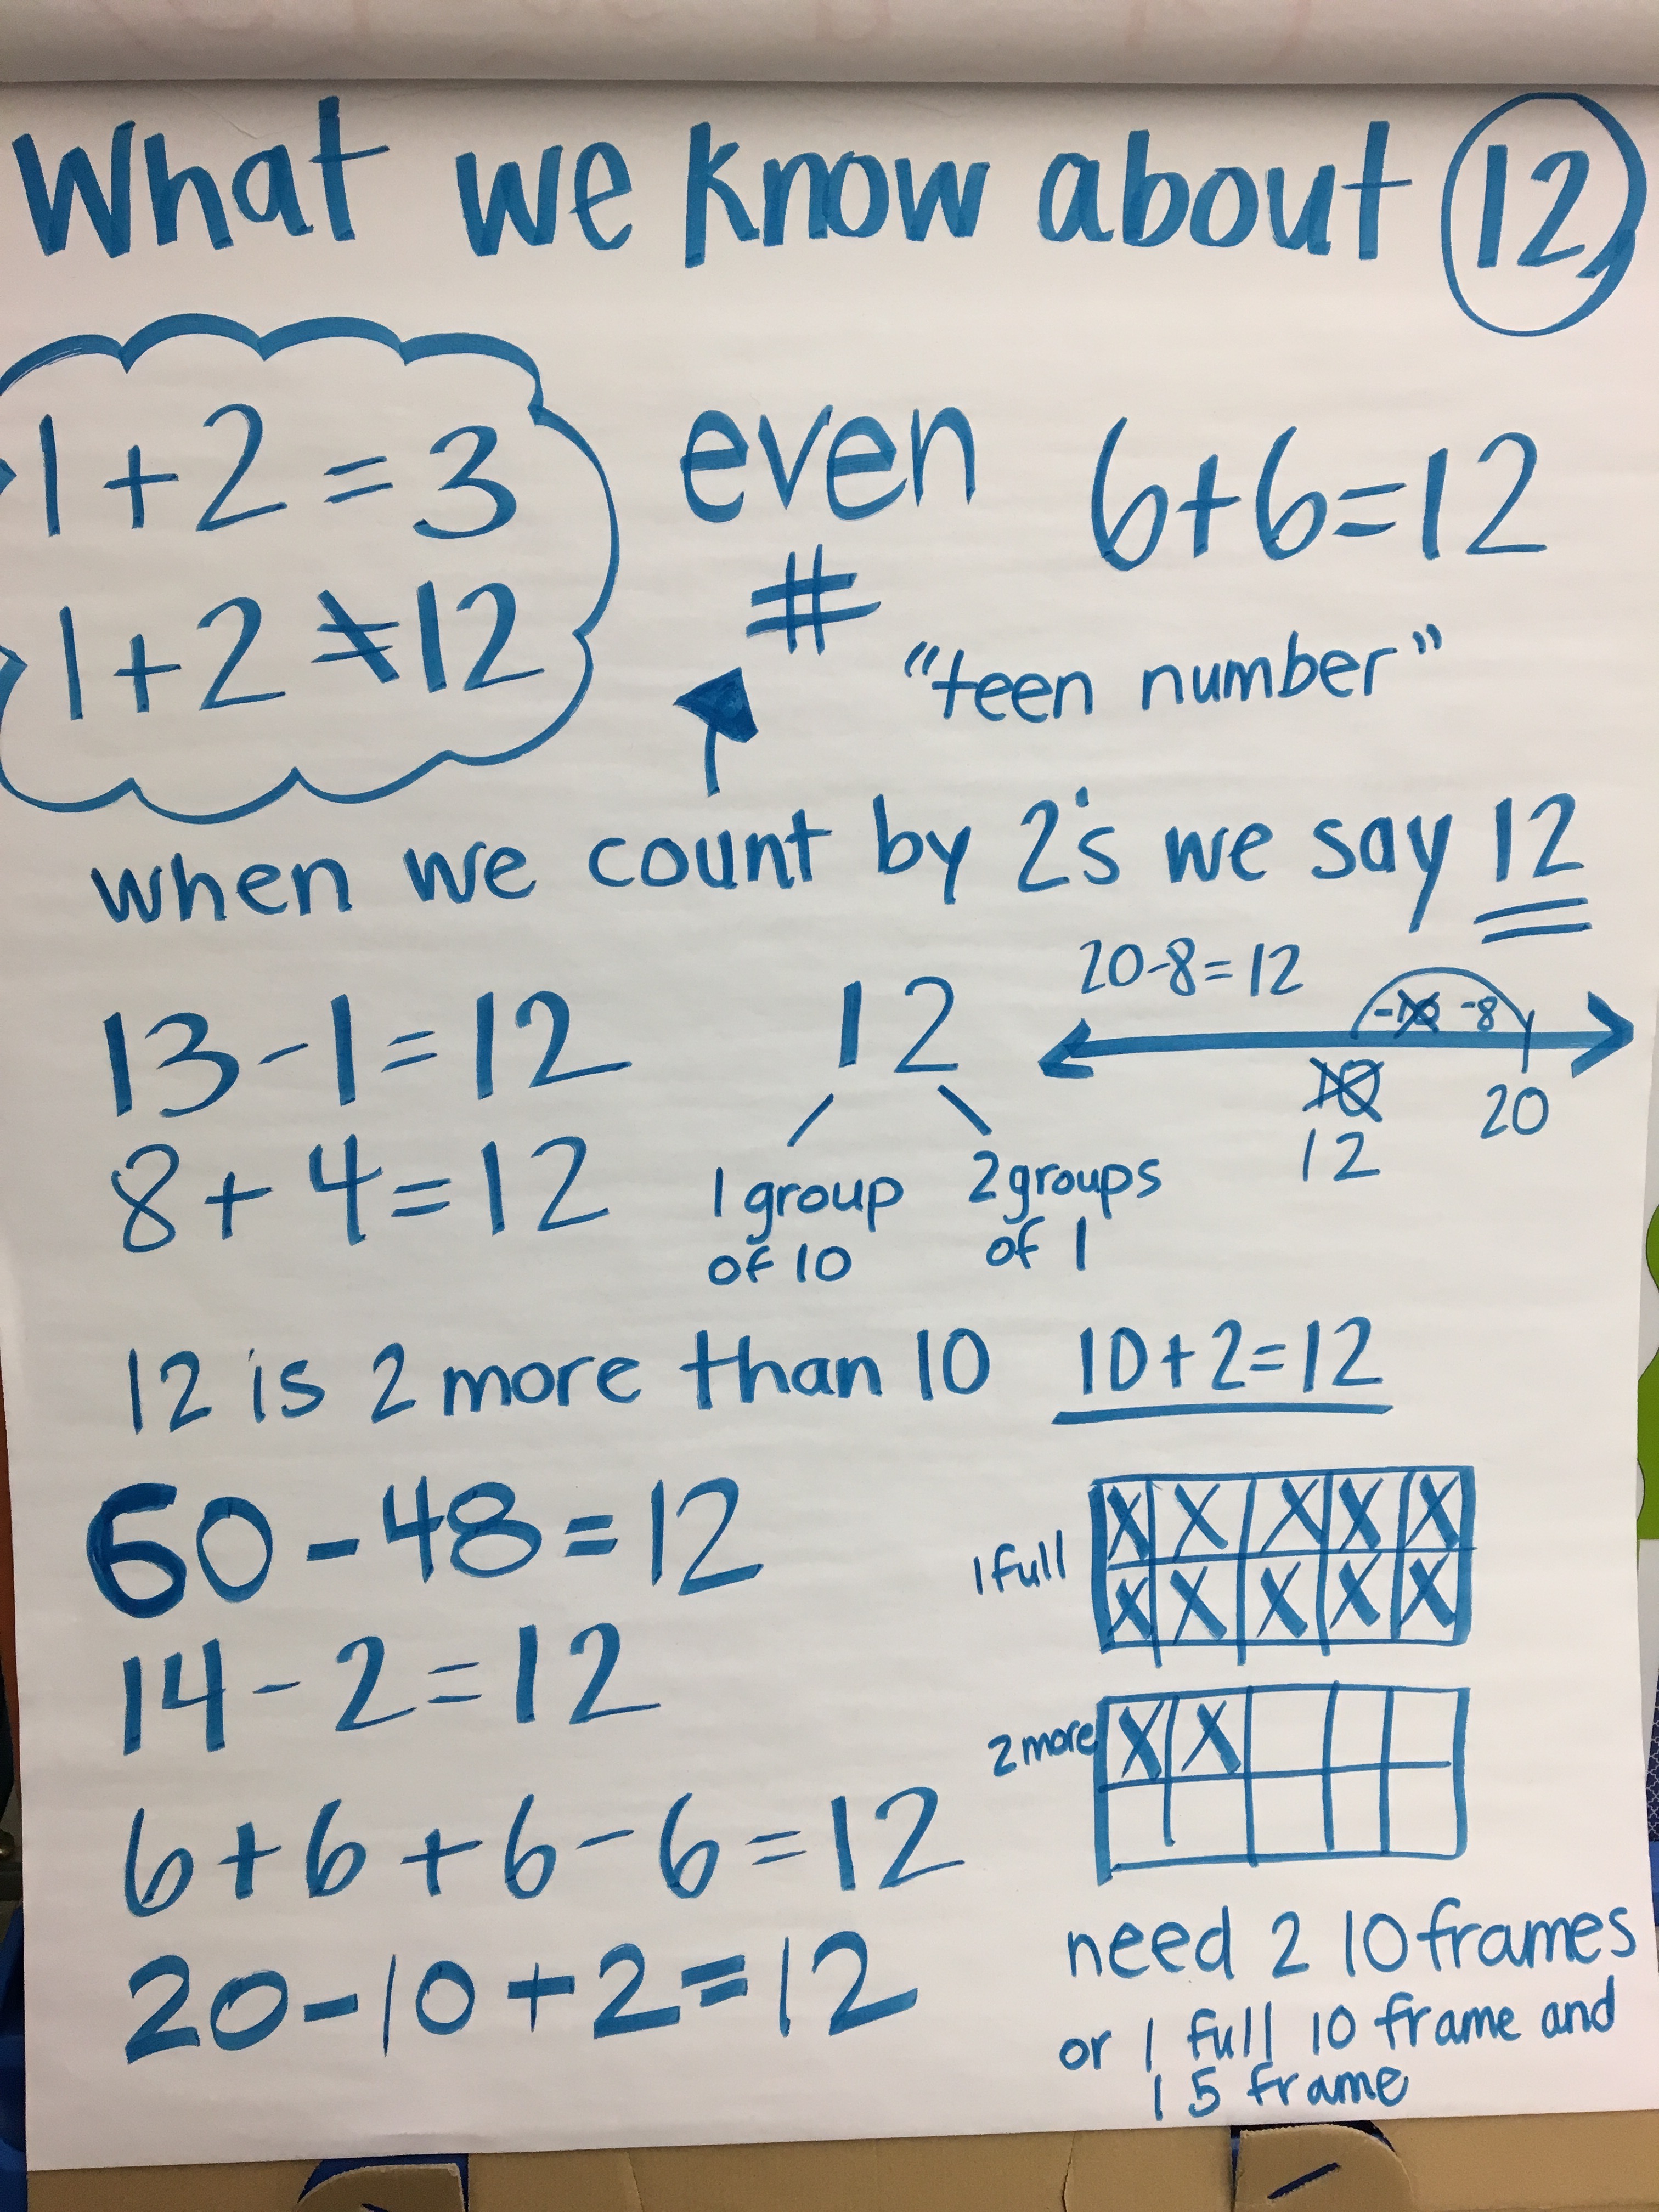 What we know about 12
1+2=3
1+2≠12
even
#
6+6=12
"teen number"
when we count by 2's we say 12
20-8=12
-10 -8
10
12
20
13-1=12
8+4=12
12
1 group
of 10
2 groups
of 1
12 is 2 more than 10
10+2=12
60-48=12
14-2=12
6+6+6-6=12
20-10+2=12
1 full
X X X X X
X X X X X
2 more
X X
need 2 10 frames
or 1 full 10 frame and
1 5 frame